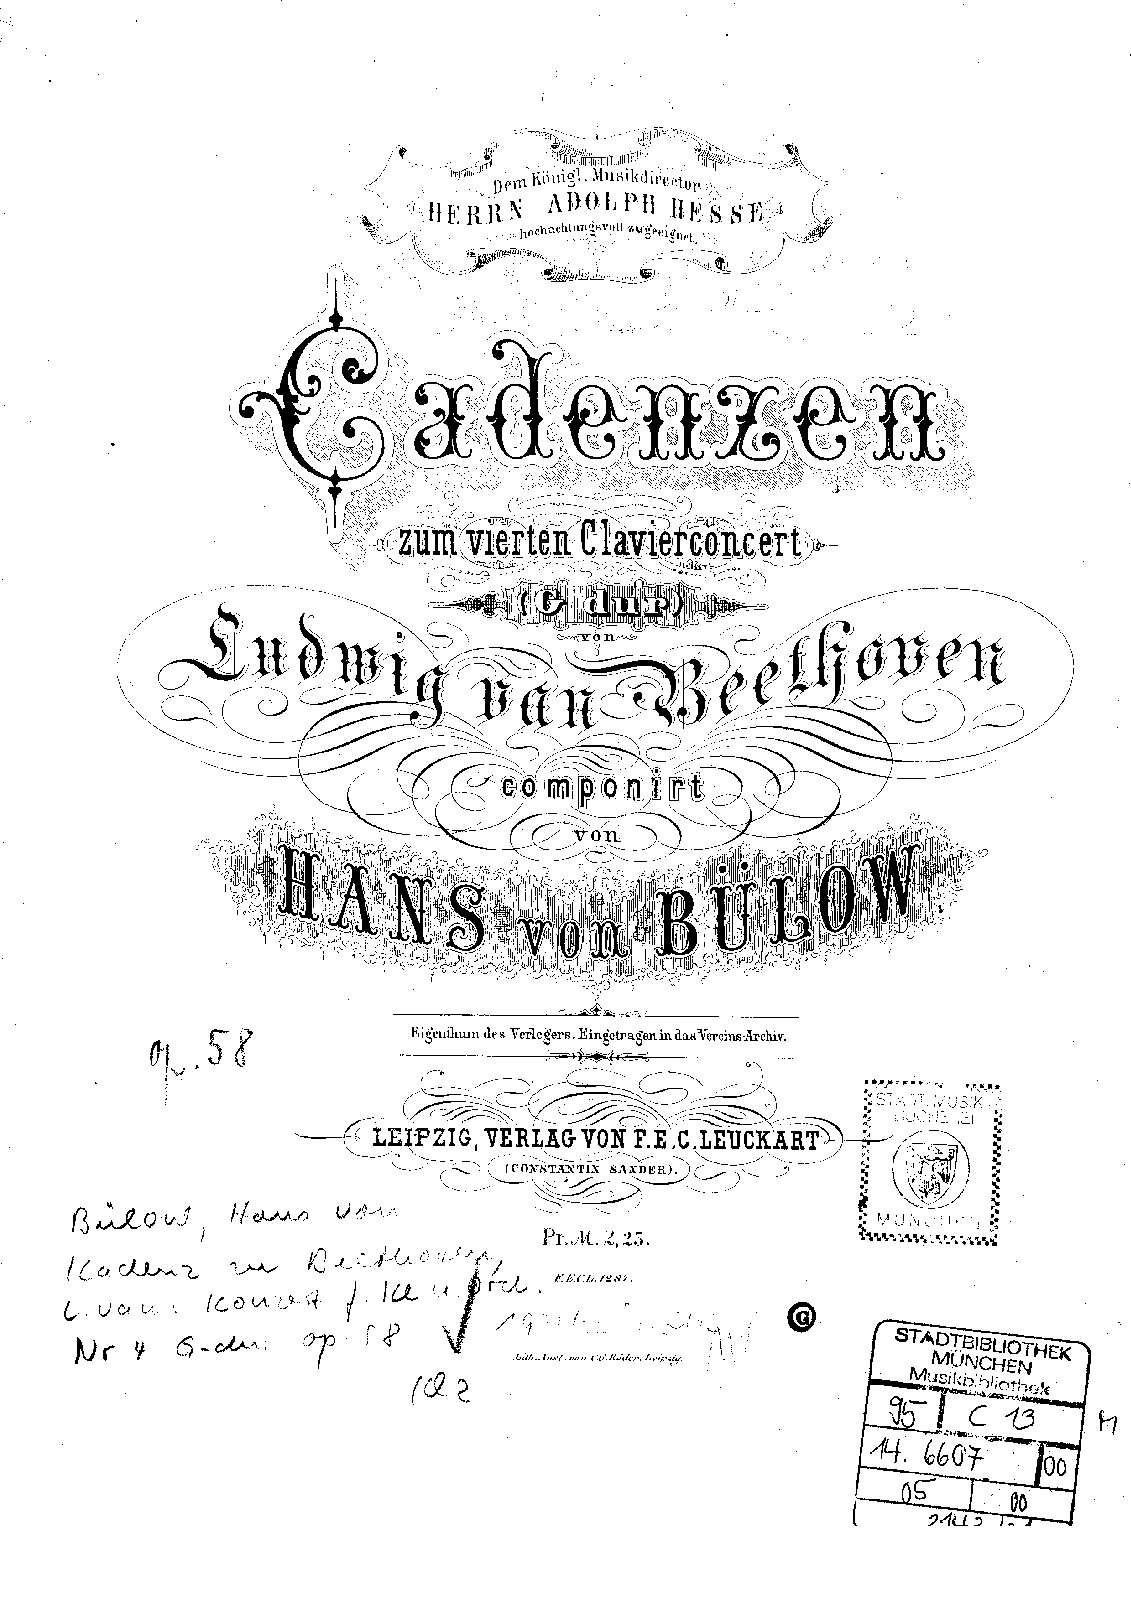 Dem Königl. Musikdirector
HERRN ADOLPH HESSE
hochachtungsvoll zugeeignet.
Cadenzen
zum vierten Clavierconcert
(G dur)
von
Ludwig van Beethoven
componirt
von
HANS von BÜLOW
Eigenthum des Verlegers. Eingetragen in das Vereins-Archiv.
op. 58
LEIPZIG, VERLAG VON F. E. C. LEUCKART
(CONSTANTIN SANDER).
STÄDT. MUSIK
BÜCHEREI
MÜNCHEN
Pr. M. 2,25.
F.E.C.L. 1284.
Bülow, Hans von
Kadenz zu Beethoven,
L. van: Konzert f. Kl u. Orch.
Nr 4 G-dur op. 58
Lith. Anst. von C.G. Röder, Leipzig.
G
STADTBIBLIOTHEK
MÜNCHEN
Musikbibliothek
95 C 13 M
14. 6607 00
05 00